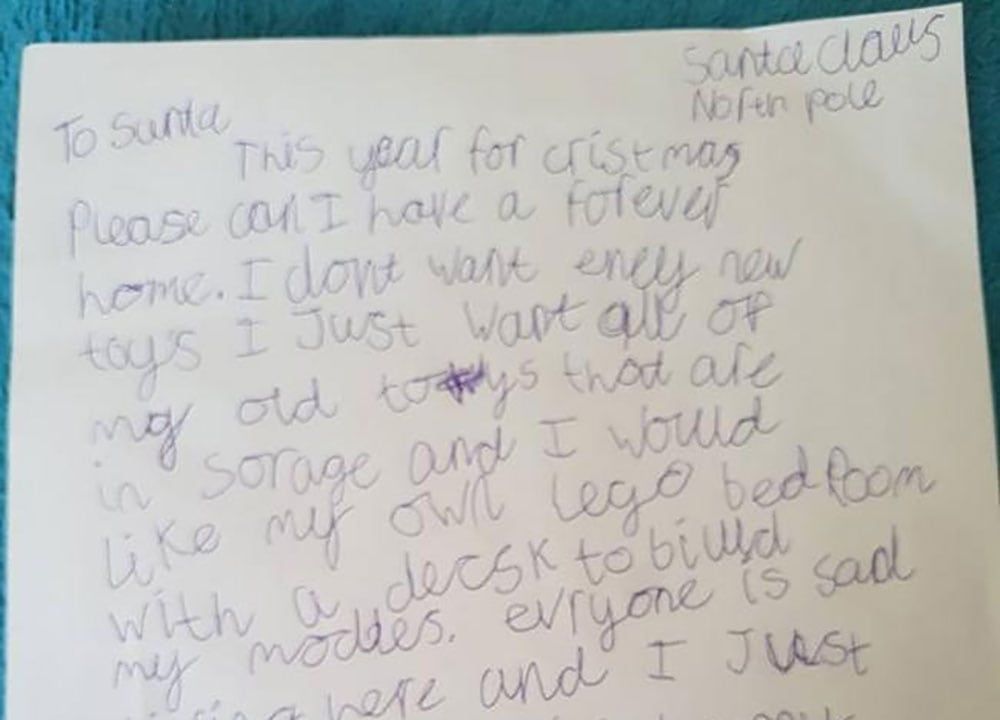 Santa Claus
North pole
To Santa
This year for cristmas
Please can I have a forever
home. I dont want eney new
toys I Just want all of
my old toys that are
in sorage and I would
like my own lego bedroom
with a decsk to biulld
my moddes. evryone is sad
here and I Just